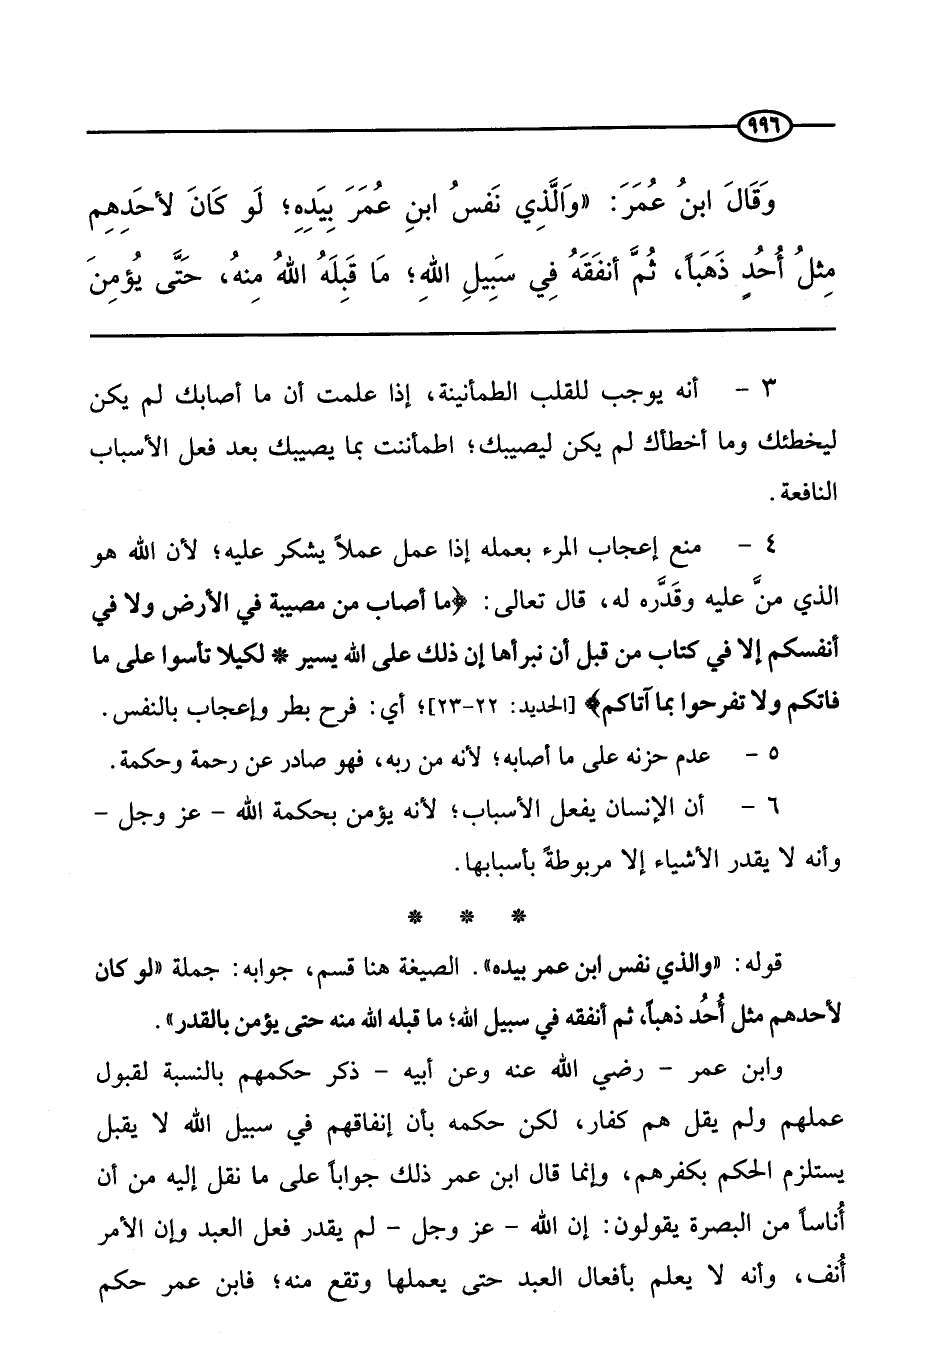 ٩٩٦
وَقَالَ ابنُ عُمَرَ: «وَالَّذِي نَفسُ ابنِ عُمَرَ بِيَدِهِ؛ لَو كَانَ لأحَدِهِم
مِثلُ أُحُدٍ ذَهَبَاً، ثُمَّ أنفَقَهُ فِي سَبِيلِ اللهِ؛ مَا قَبِلَهُ اللهُ مِنهُ، حَتَّى يُؤمِنَ
٣ - أنه يوجب للقلب الطمأنينة، إذا علمت أن ما أصابك لم يكن
ليخطئك وما أخطأك لم يكن ليصيبك؛ اطمأننت بما يصيبك بعد فعل الأسباب
النافعة.
٤ - منع إعجاب المرء بعمله إذا عمل عملاً يشكر عليه؛ لأن الله هو
الذي منَّ عليه وقَدَّره له، قال تعالى: ﴿ما أصاب من مصيبة في الأرض ولا في
أنفسكم إلا في كتاب من قبل أن نبرأها إن ذلك على الله يسير * لكيلا تأسوا على ما
فاتكم ولا تفرحوا بما آتاكم﴾ [الحديد: ٢٢-٢٣]؛ أي: فرح بطر وإعجاب بالنفس.
٥ - عدم حزنه على ما أصابه؛ لأنه من ربه، فهو صادر عن رحمة وحكمة.
٦ - أن الإنسان يفعل الأسباب؛ لأنه يؤمن بحكمة الله - عز وجل -
وأنه لا يقدر الأشياء إلا مربوطةً بأسبابها.
* * *
قوله: «والذي نفس ابن عمر بيده». الصيغة هنا قسم، جوابه: جملة «لو كان
لأحدهم مثل أُحُد ذهباً، ثم أنفقه في سبيل الله؛ ما قبله الله منه حتى يؤمن بالقدر».
وابن عمر - رضي الله عنه وعن أبيه - ذكر حكمهم بالنسبة لقبول
عملهم ولم يقل هم كفار، لكن حكمه بأن إنفاقهم في سبيل الله لا يقبل
يستلزم الحكم بكفرهم، وإنما قال ابن عمر ذلك جواباً على ما نقل إليه من أن
أُناساً من البصرة يقولون: إن الله - عز وجل - لم يقدر فعل العبد وإن الأمر
أُنف، وأنه لا يعلم بأفعال العبد حتى يعملها وتقع منه؛ فابن عمر حكم